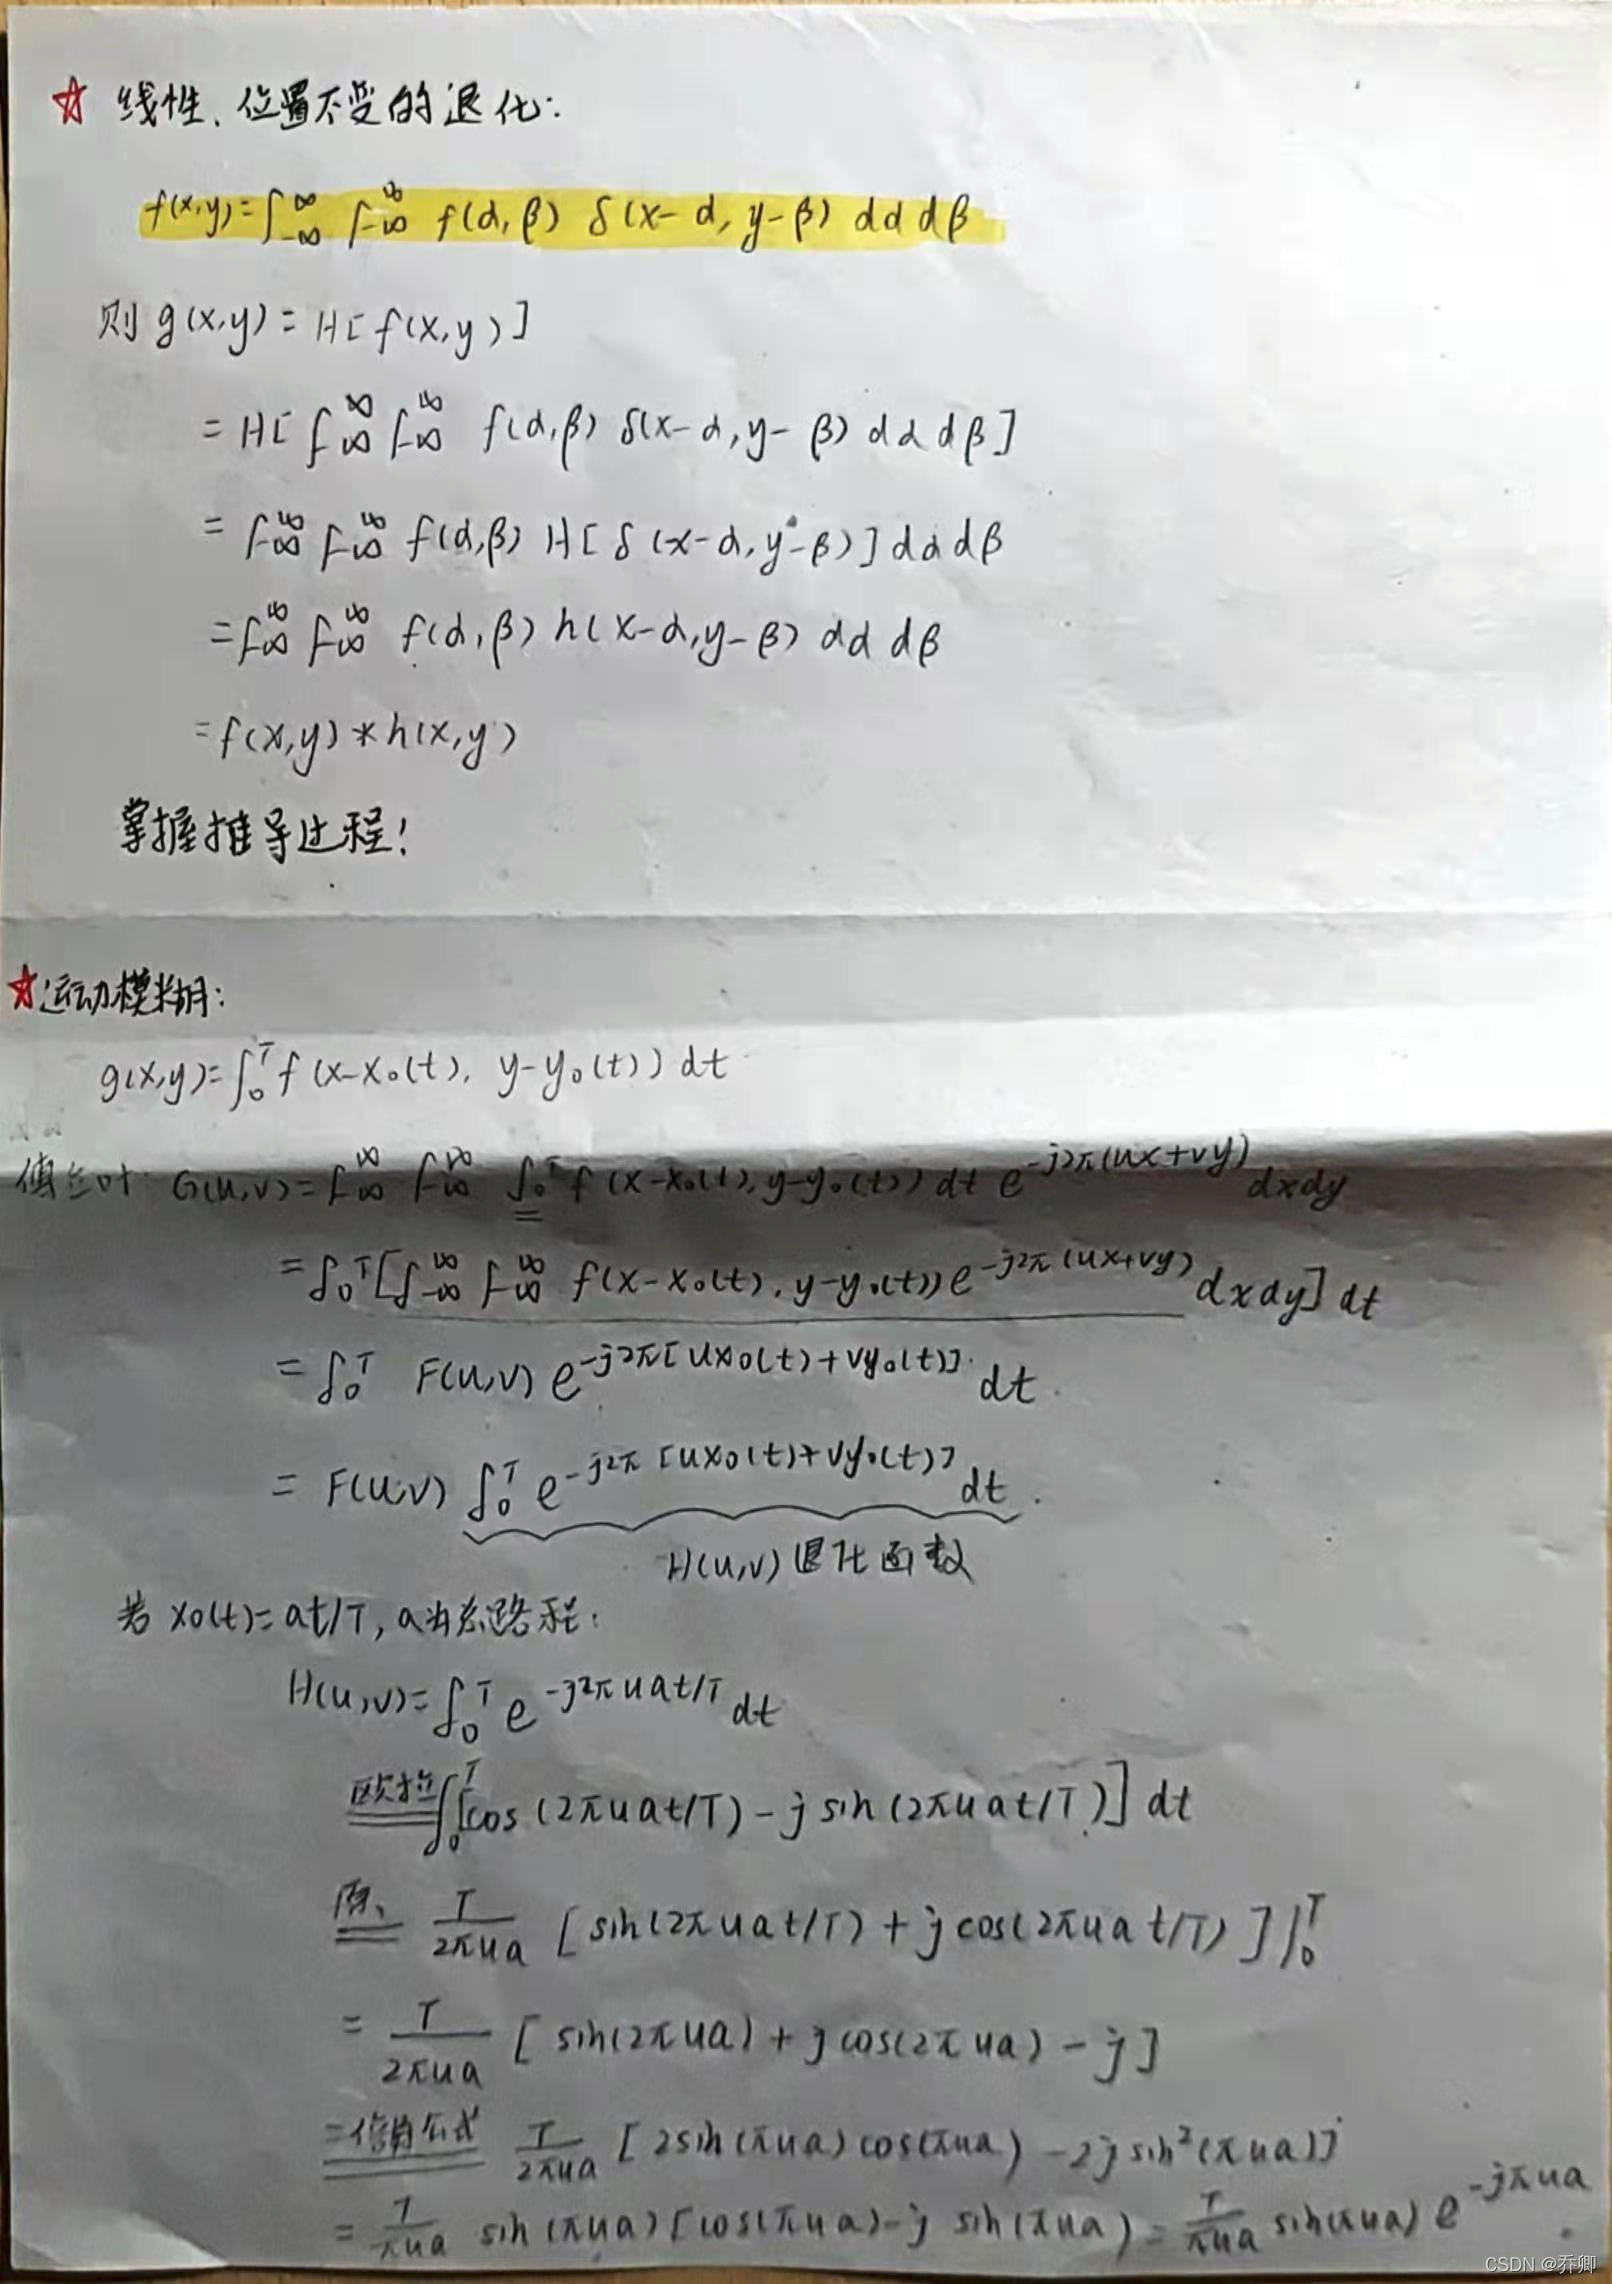 ☆ 线性、位置不变的退化:
f(x,y)=∫_{-∞}^{∞} ∫_{-∞}^{∞} f(α,β) δ(x-α, y-β) dα dβ
则 g(x,y) = H[f(x,y)]
= H[∫_{-∞}^{∞} ∫_{-∞}^{∞} f(α,β) δ(x-α, y-β) dα dβ]
= ∫_{-∞}^{∞} ∫_{-∞}^{∞} f(α,β) H[δ(x-α, y-β)] dα dβ
= ∫_{-∞}^{∞} ∫_{-∞}^{∞} f(α,β) h(x-α, y-β) dα dβ
= f(x,y) * h(x,y)
掌握推导过程!
☆ 运动模糊:
g(x,y)=∫_0^T f(x-x₀(t), y-y₀(t)) dt
傅立叶: G(u,v)=∫_{-∞}^{∞} ∫_{-∞}^{∞} ∫_0^T f(x-x₀(t), y-y₀(t)) dt e^{-j2π(ux+vy)} dxdy
= ∫_0^T [∫_{-∞}^{∞} ∫_{-∞}^{∞} f(x-x₀(t), y-y₀(t)) e^{-j2π(ux+vy)} dxdy] dt
= ∫_0^T F(u,v) e^{-j2π[ux₀(t)+vy₀(t)]} dt
= F(u,v) ∫_0^T e^{-j2π[ux₀(t)+vy₀(t)]} dt.
H(u,v) 退化函数
若 x₀(t)=at/T, a为总路程:
H(u,v)=∫_0^T e^{-j2πuat/T} dt
欧拉 ∫_0^T [cos(2πuat/T) - j sin(2πuat/T)] dt
= T/(2πua) [sin(2πuat/T) + j cos(2πuat/T)] |_0^T
= T/(2πua) [sin(2πua) + j cos(2πua) - j]
=倍角公式 T/(2πua) [2sin(πua) cos(πua) - 2j sin²(πua)]
= T/(πua) sin(πua) [cos(πua) - j sin(πua) = T/(πua) sin(πua) e^{-jπua}
CSDN @乔卿